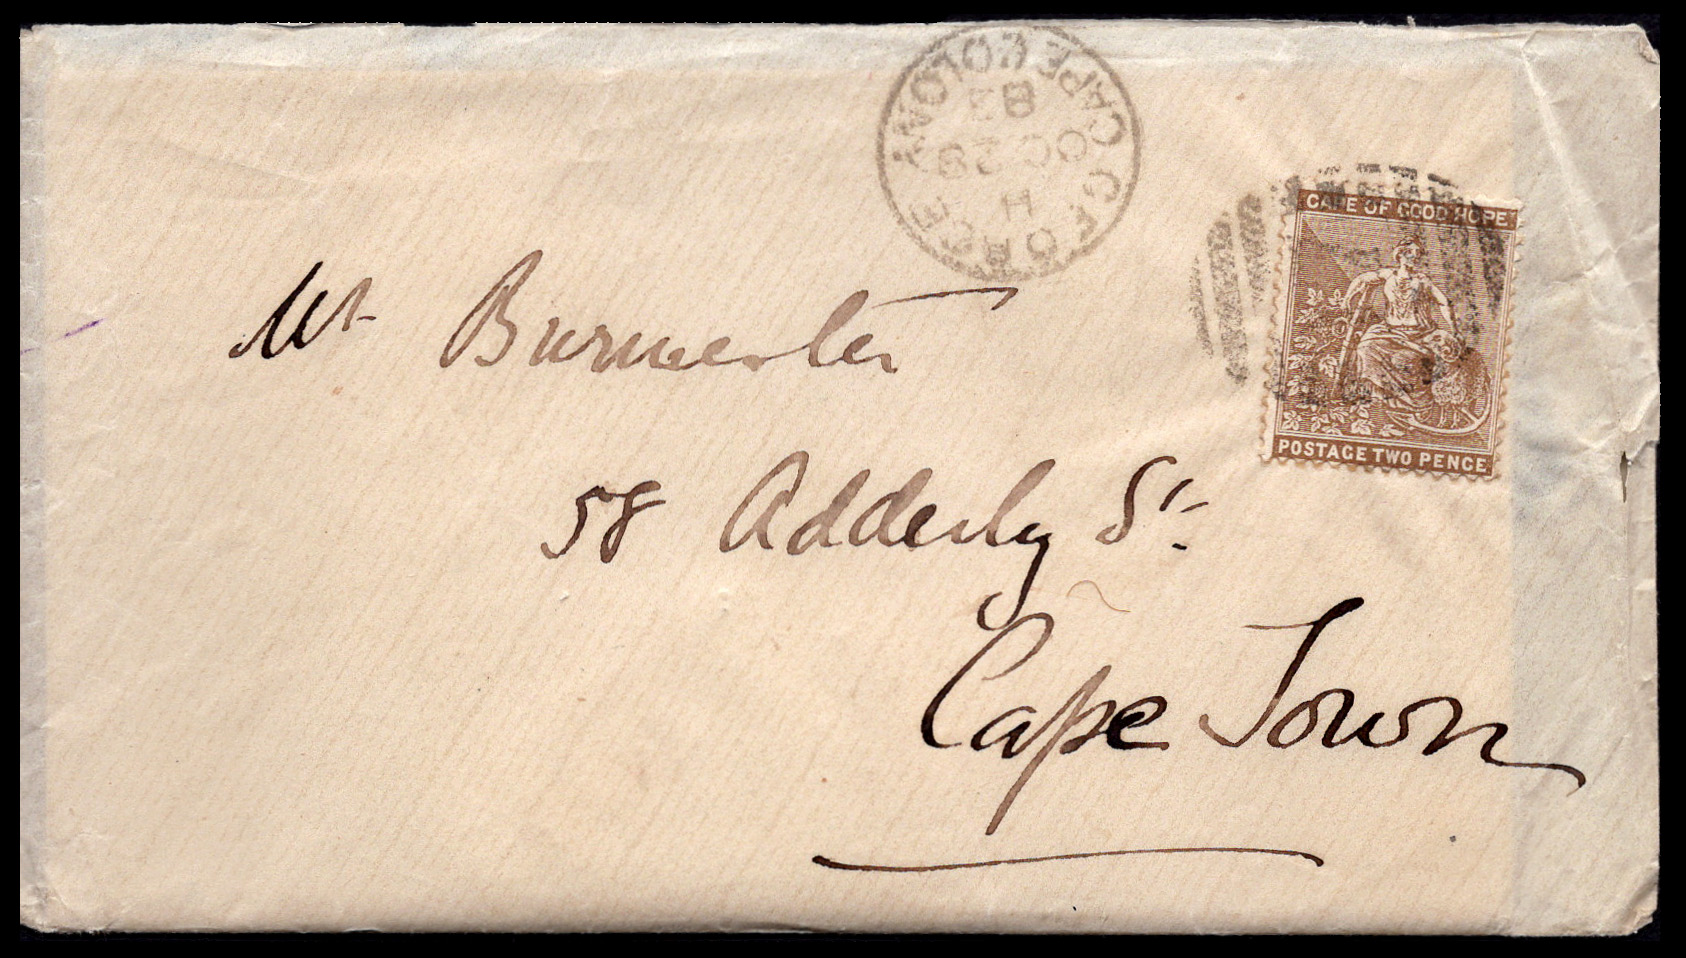 CAPE OF GOOD HOPE
POSTAGE TWO PENCE
GEORGE
H
OC 29
CAPE COLONY
Mr Burmester
58 Adderly St.
Cape Town